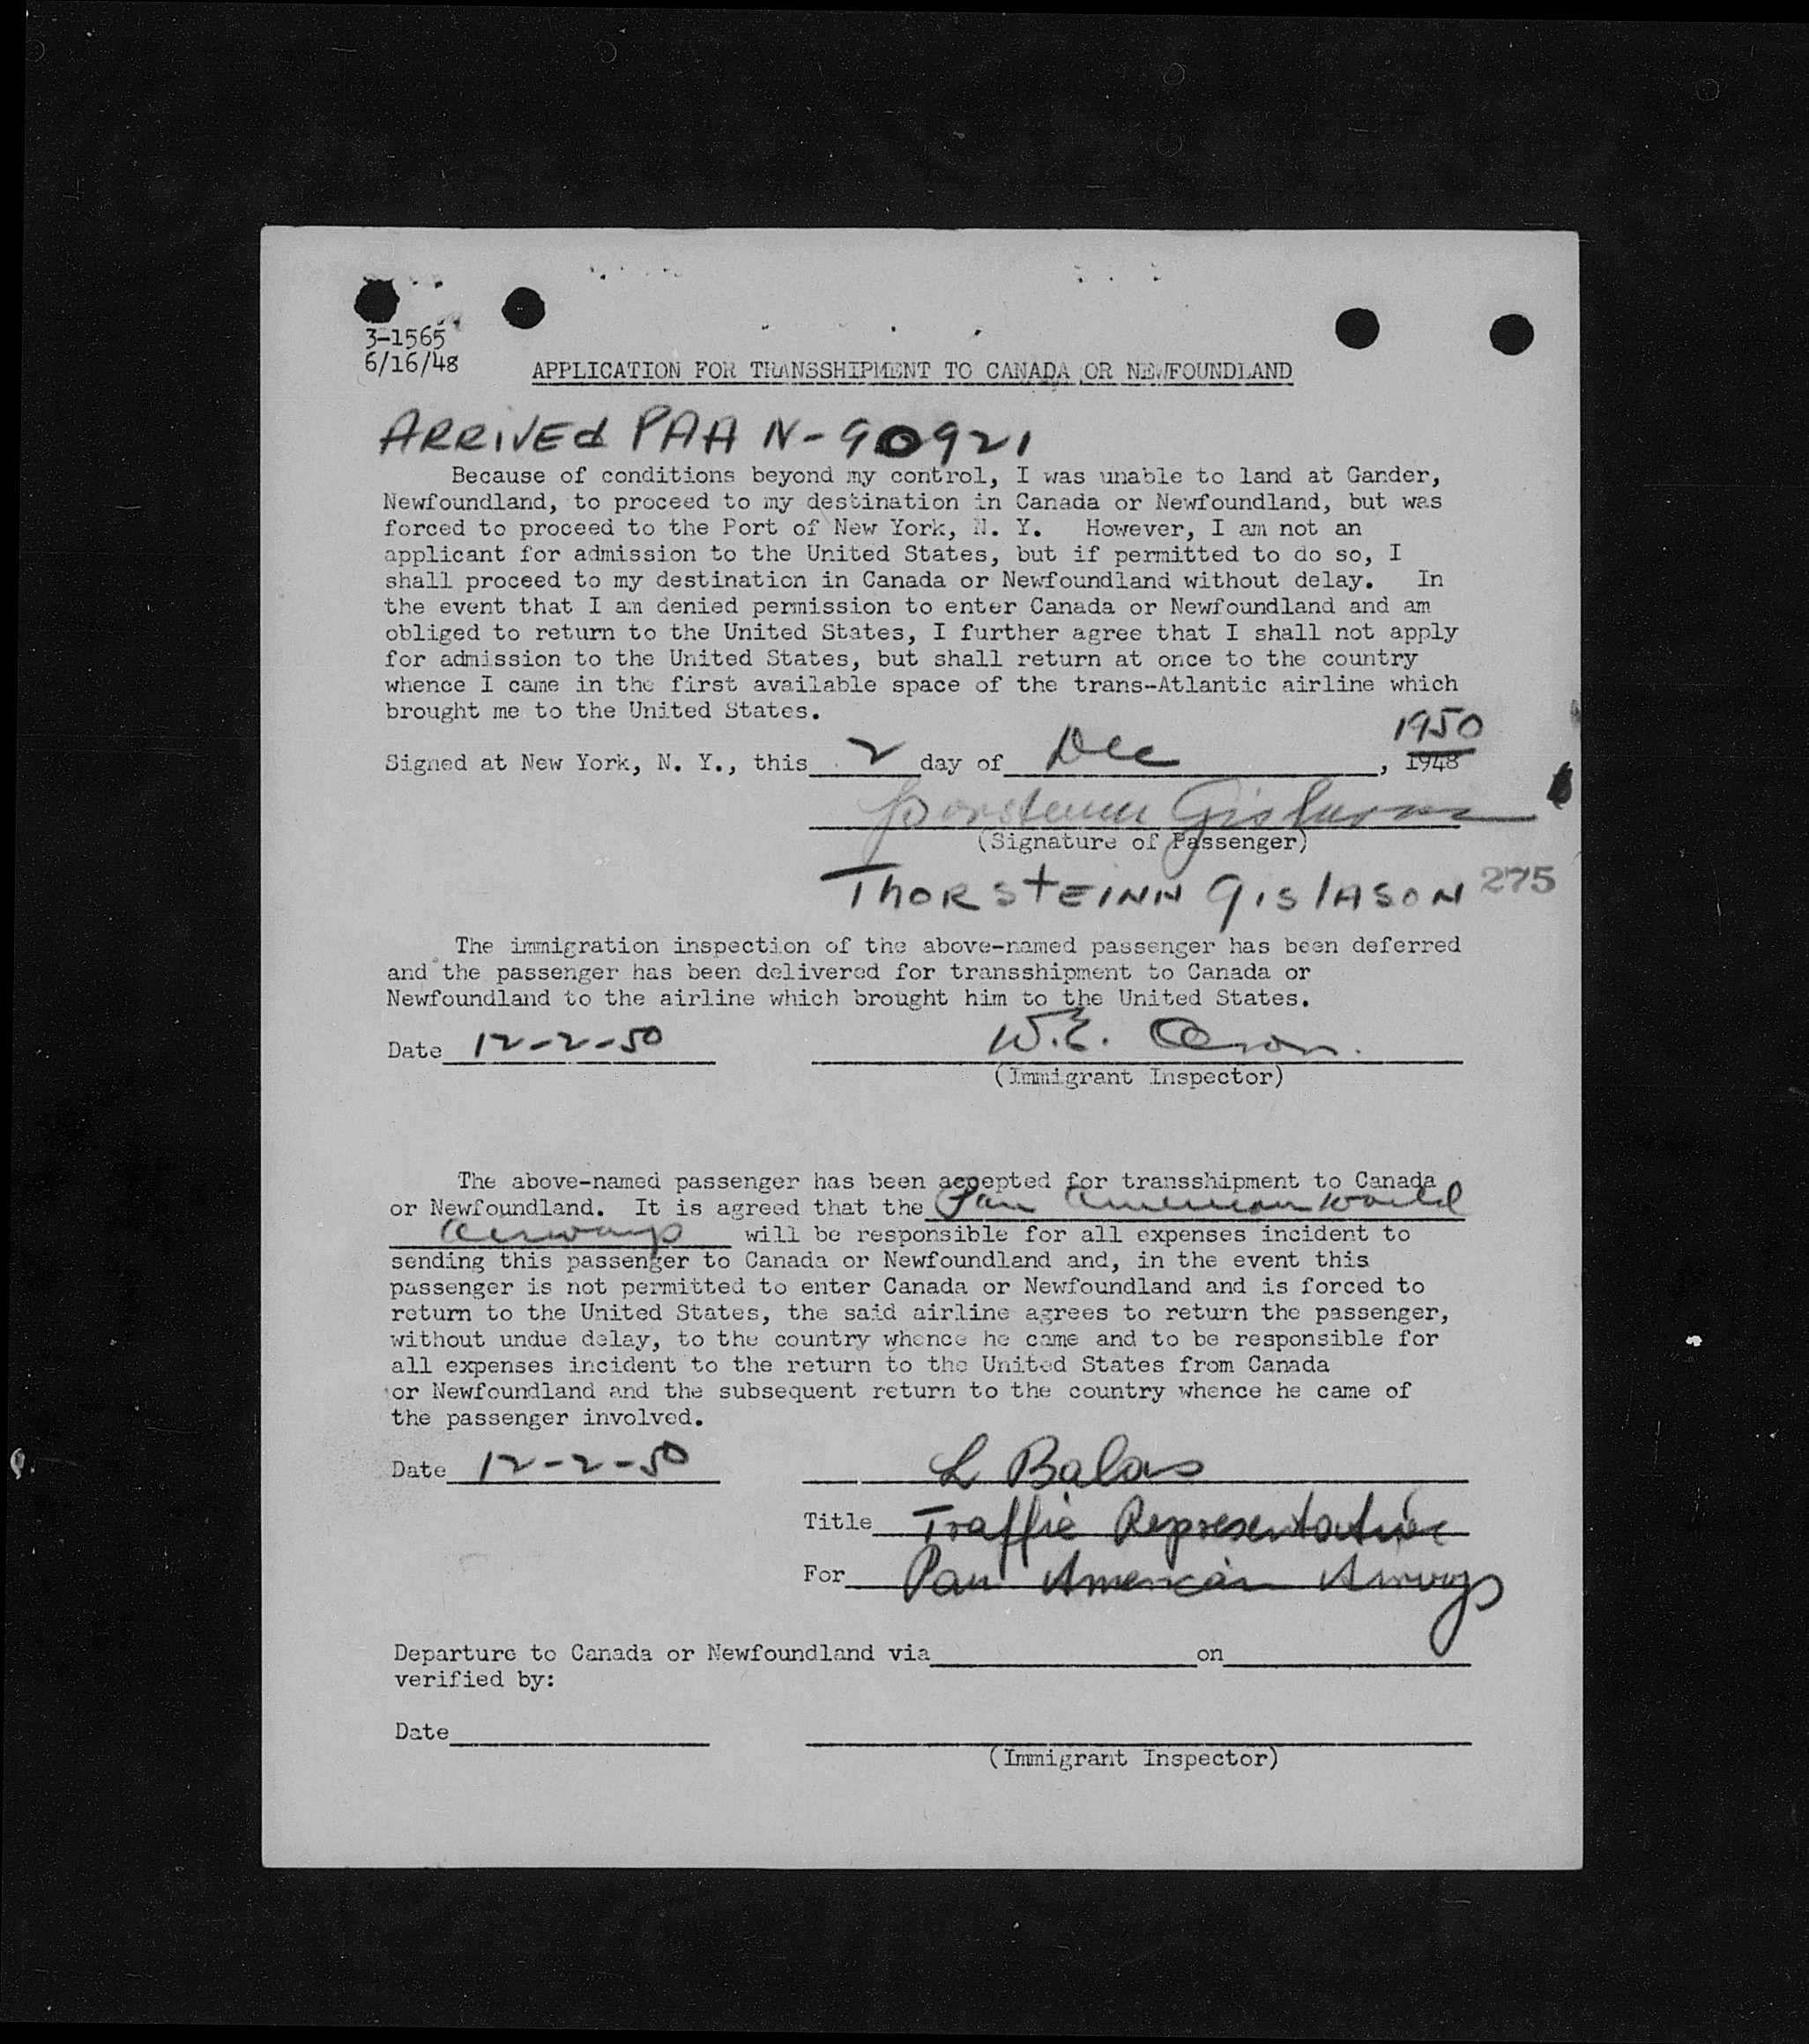 3-1565
6/16/48
APPLICATION FOR TRANSSHIPMENT TO CANADA OR NEWFOUNDLAND
ARRIVEd PAA N-90921
Because of conditions beyond my control, I was unable to land at Gander,
Newfoundland, to proceed to my destination in Canada or Newfoundland, but was
forced to proceed to the Port of New York, N. Y. However, I am not an
applicant for admission to the United States, but if permitted to do so, I
shall proceed to my destination in Canada or Newfoundland without delay. In
the event that I am denied permission to enter Canada or Newfoundland and am
obliged to return to the United States, I further agree that I shall not apply
for admission to the United States, but shall return at once to the country
whence I came in the first available space of the trans-Atlantic airline which
brought me to the United States.
1950
Signed at New York, N. Y., this 2 day of Dec, 1948
Þorsteinn Gislason
(Signature of Passenger)
THORSTEINN GISLASON 275
The immigration inspection of the above-named passenger has been deferred
and the passenger has been delivered for transshipment to Canada or
Newfoundland to the airline which brought him to the United States.
Date 12-2-50 W.E.
(Immigrant Inspector)
The above-named passenger has been accepted for transshipment to Canada
or Newfoundland. It is agreed that the Pan American World
Airways will be responsible for all expenses incident to
sending this passenger to Canada or Newfoundland and, in the event this
passenger is not permitted to enter Canada or Newfoundland and is forced to
return to the United States, the said airline agrees to return the passenger,
without undue delay, to the country whence he came and to be responsible for
all expenses incident to the return to the United States from Canada
or Newfoundland and the subsequent return to the country whence he came of
the passenger involved.
Date 12-2-50 L Balas
Title Traffic Representative
For Pan American Airways
Departure to Canada or Newfoundland via on
verified by:
Date
(Immigrant Inspector)